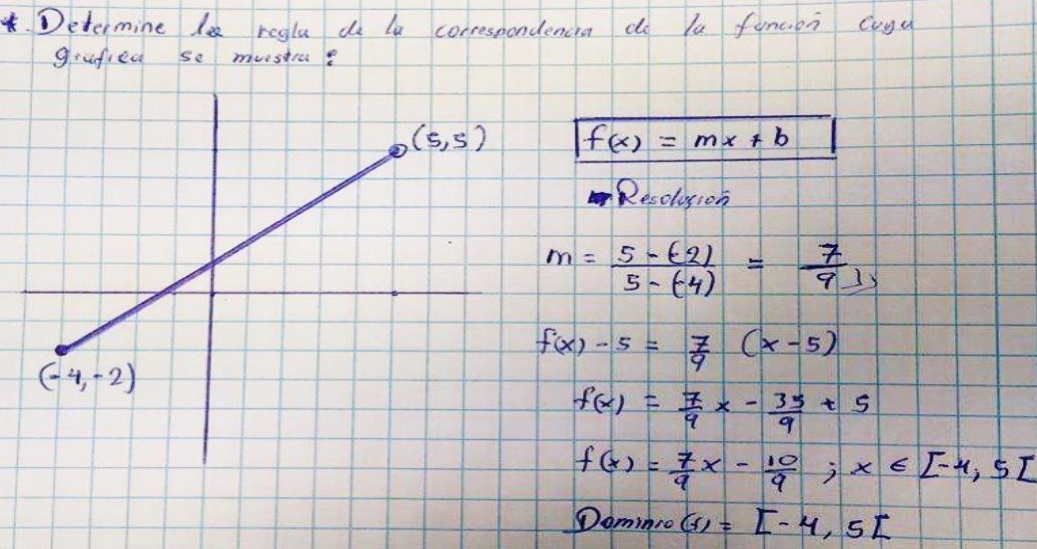 *. Determine la regla de la correspondencia de la función cuya
grafica se muestra:
(5,5)
(-4,-2)
f(x) = mx + b
Resolución
m = 5 - (-2) / 5 - (-4) = 7/9
f(x) - 5 = 7/9 (x - 5)
f(x) = 7/9 x - 35/9 + 5
f(x) = 7/9 x - 10/9 ; x ∈ [-4, 5[
Dominio(f) = [-4, 5[